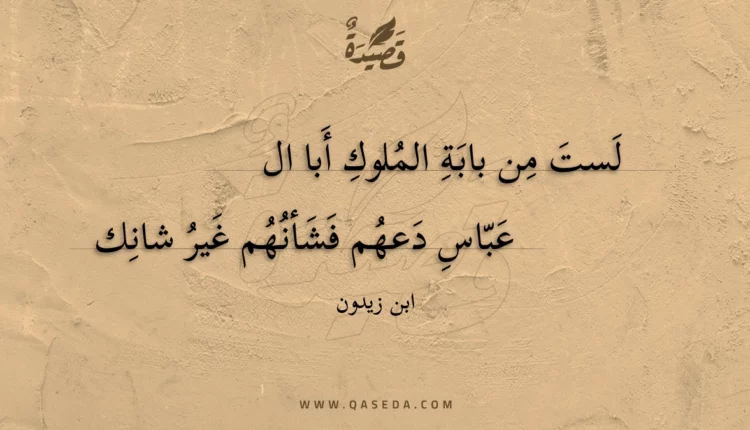 قَصِيدَةٌ
لَستَ مِن بابَةِ المُلوكِ أَبا ال
عَبّاسِ دَعهُم فَشَأنُهُم غَيرُ شانِك
ابن زيدون
WWW.QASEDA.COM